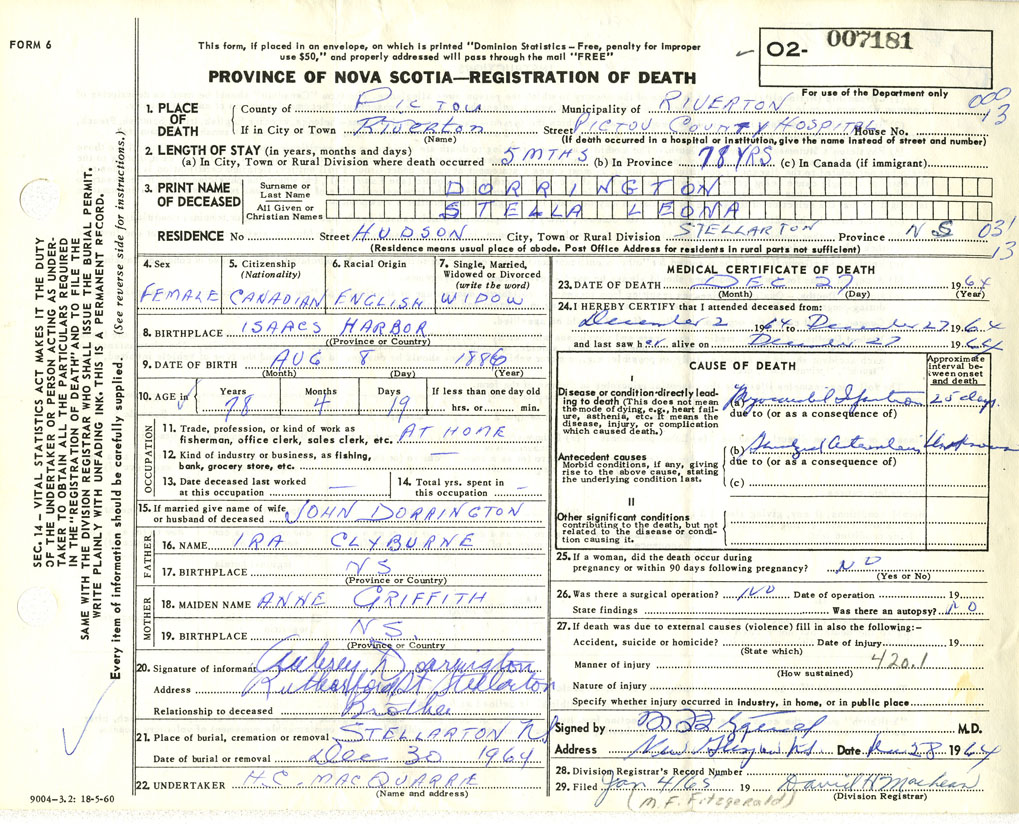 FORM 6
This form, if placed in an envelope, on which is printed "Dominion Statistics – Free, penalty for improper
use $50," and properly addressed will pass through the mail "FREE"
PROVINCE OF NOVA SCOTIA—REGISTRATION OF DEATH
02- 007181
For use of the Department only
000
13
1. PLACE OF DEATH
County of PICTOU Municipality of RIVERTON
If in City or Town Riverton Street PICTOU COUNTY HOSPITAL House No.
(Name) (If death occurred in a hospital or institution, give the name instead of street and number)
2. LENGTH OF STAY (in years, months and days)
(a) In City, Town or Rural Division where death occurred 5 MTHS (b) In Province 78 YRS. (c) In Canada (if immigrant)
3. PRINT NAME OF DECEASED
Surname or Last Name DORRINGTON
All Given or Christian Names STELLA LEONA
RESIDENCE No Street HUDSON City, Town or Rural Division STELLARTON Province N S 031
13
(Residence means usual place of abode. Post Office Address for residents in rural parts not sufficient)
4. Sex 5. Citizenship (Nationality) 6. Racial Origin 7. Single, Married, Widowed or Divorced (write the word)
FEMALE CANADIAN ENGLISH WIDOW
8. BIRTHPLACE ISAACS HARBOR
((Province or Country)
9. DATE OF BIRTH AUG 8 1886
(Month) (Day) (Year)
10. AGE in Years Months Days If less than one day old
78 4 19 hrs. or min.
OCCUPATION
11. Trade, profession, or kind of work as
fisherman, office clerk, sales clerk, etc. AT HOME
12. Kind of industry or business, as fishing,
bank, grocery store, etc. —
13. Date deceased last worked at this occupation —
14. Total yrs. spent in this occupation —
15. If married give name of wife
or husband of deceased JOHN DORRINGTON
FATHER
16. NAME IRA CLYBURNE
17. BIRTHPLACE NS
(Province or Country)
MOTHER
18. MAIDEN NAME ANNE GRIFFITH
19. BIRTHPLACE NS.
(Province or Country)
20. Signature of informant Aubrey Dorrington
Address Rutherford St Stellarton
Relationship to deceased Brother
21. Place of burial, cremation or removal STELLARTON NS
Date of burial or removal Dec 30 1964
22. UNDERTAKER H.C. MACQUARRIE
(Name and address)
MEDICAL CERTIFICATE OF DEATH
23. DATE OF DEATH DEC 27 1964
(Month) (Day) (Year)
24. I HEREBY CERTIFY that I attended deceased from:
December 2 1964 to December 27 1964
and last saw her alive on December 27 1964
CAUSE OF DEATH
Approximate interval between onset and death
I
Disease or condition directly leading to death (This does not mean
the mode of dying, e.g., heart failure, asthenia, etc. It means the
disease, injury, or complication
which caused death.)
(a) 25 days
due to (or as a consequence of)
Antecedent causes
Morbid conditions, if any, giving
rise to the above cause, stating
the underlying condition last.
(b) Unknown
due to (or as a consequence of)
(c)
II
Other significant conditions
contributing to the death, but not
related to the disease or condition causing it.
25. If a woman, did the death occur during
pregnancy or within 90 days following pregnancy? NO
(Yes or No)
26. Was there a surgical operation? NO Date of operation 19
State findings Was there an autopsy? NO
27. If death was due to external causes (violence) fill in also the following:–
Accident, suicide or homicide? Date of injury 19
(State which)
Manner of injury 420.1
(How sustained)
Nature of injury
Specify whether injury occurred in industry, in home, or in public place
Signed by M.D.
Address New Glasgow NS Date Dec 28 1964
28. Division Registrar's Record Number
29. Filed Jan 4/65 19 David H MacLean
(M. F. Fitzgerald) (Division Registrar)
9004–3.2: 18-5-60
SEC. 14 – VITAL STATISTICS ACT MAKES IT THE DUTY
OF THE UNDERTAKER OR PERSON ACTING AS UNDER-
TAKER TO OBTAIN ALL THE PARTICULARS REQUIRED
IN THE "REGISTRATION OF DEATH" AND TO FILE THE
SAME WITH THE DIVISION REGISTRAR WHO SHALL ISSUE THE BURIAL PERMIT.
WRITE PLAINLY WITH UNFADING INK. THIS IS A PERMANENT RECORD.
Every item of information should be carefully supplied. (See reverse side for instructions.)